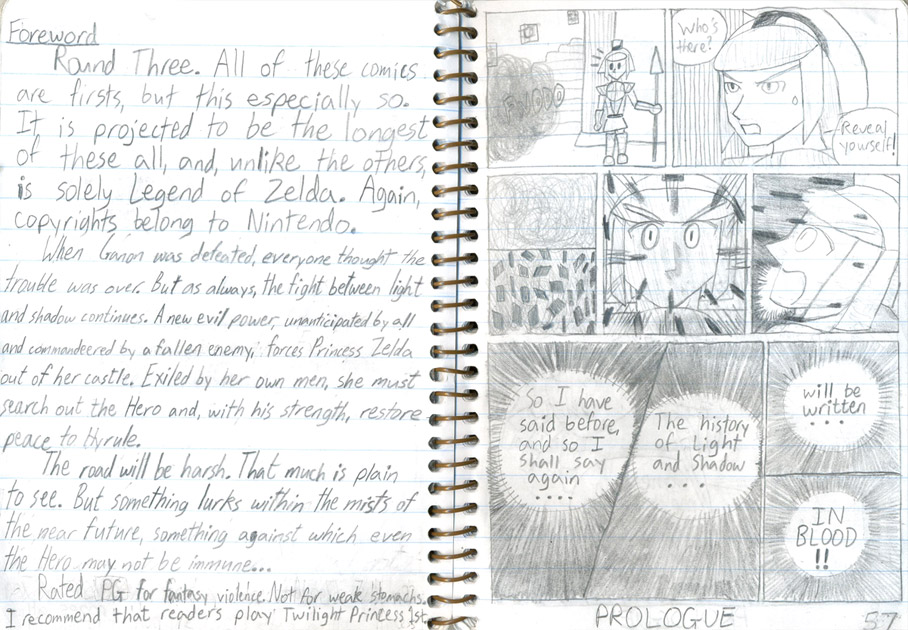 Foreword
Round Three. All of these comics
are firsts, but this especially so.
It is projected to be the longest
of these all, and, unlike the others,
is solely Legend of Zelda. Again,
copyrights belong to Nintendo.
When Ganon was defeated, everyone thought the
trouble was over. But as always, the fight between light
and shadow continues. A new evil power, unanticipated by all
and commandeered by a fallen enemy, forces Princess Zelda
out of her castle. Exiled by her own men, she must
search out the Hero and, with his strength, restore
peace to Hyrule.
The road will be harsh. That much is plain
to see. But something lurks within the mists of
the near future, something against which even
the Hero may not be immune...
Rated PG for fantasy violence. Not for weak stomachs.
I recommend that readers play Twilight Princess 1st.
Who's
there?
Reveal
yourself!
So I have
said before,
and so I
shall say
again
....
The history
of Light
and shadow
...
will be
written
...
IN
BLOOD
!!
PROLOGUE
57